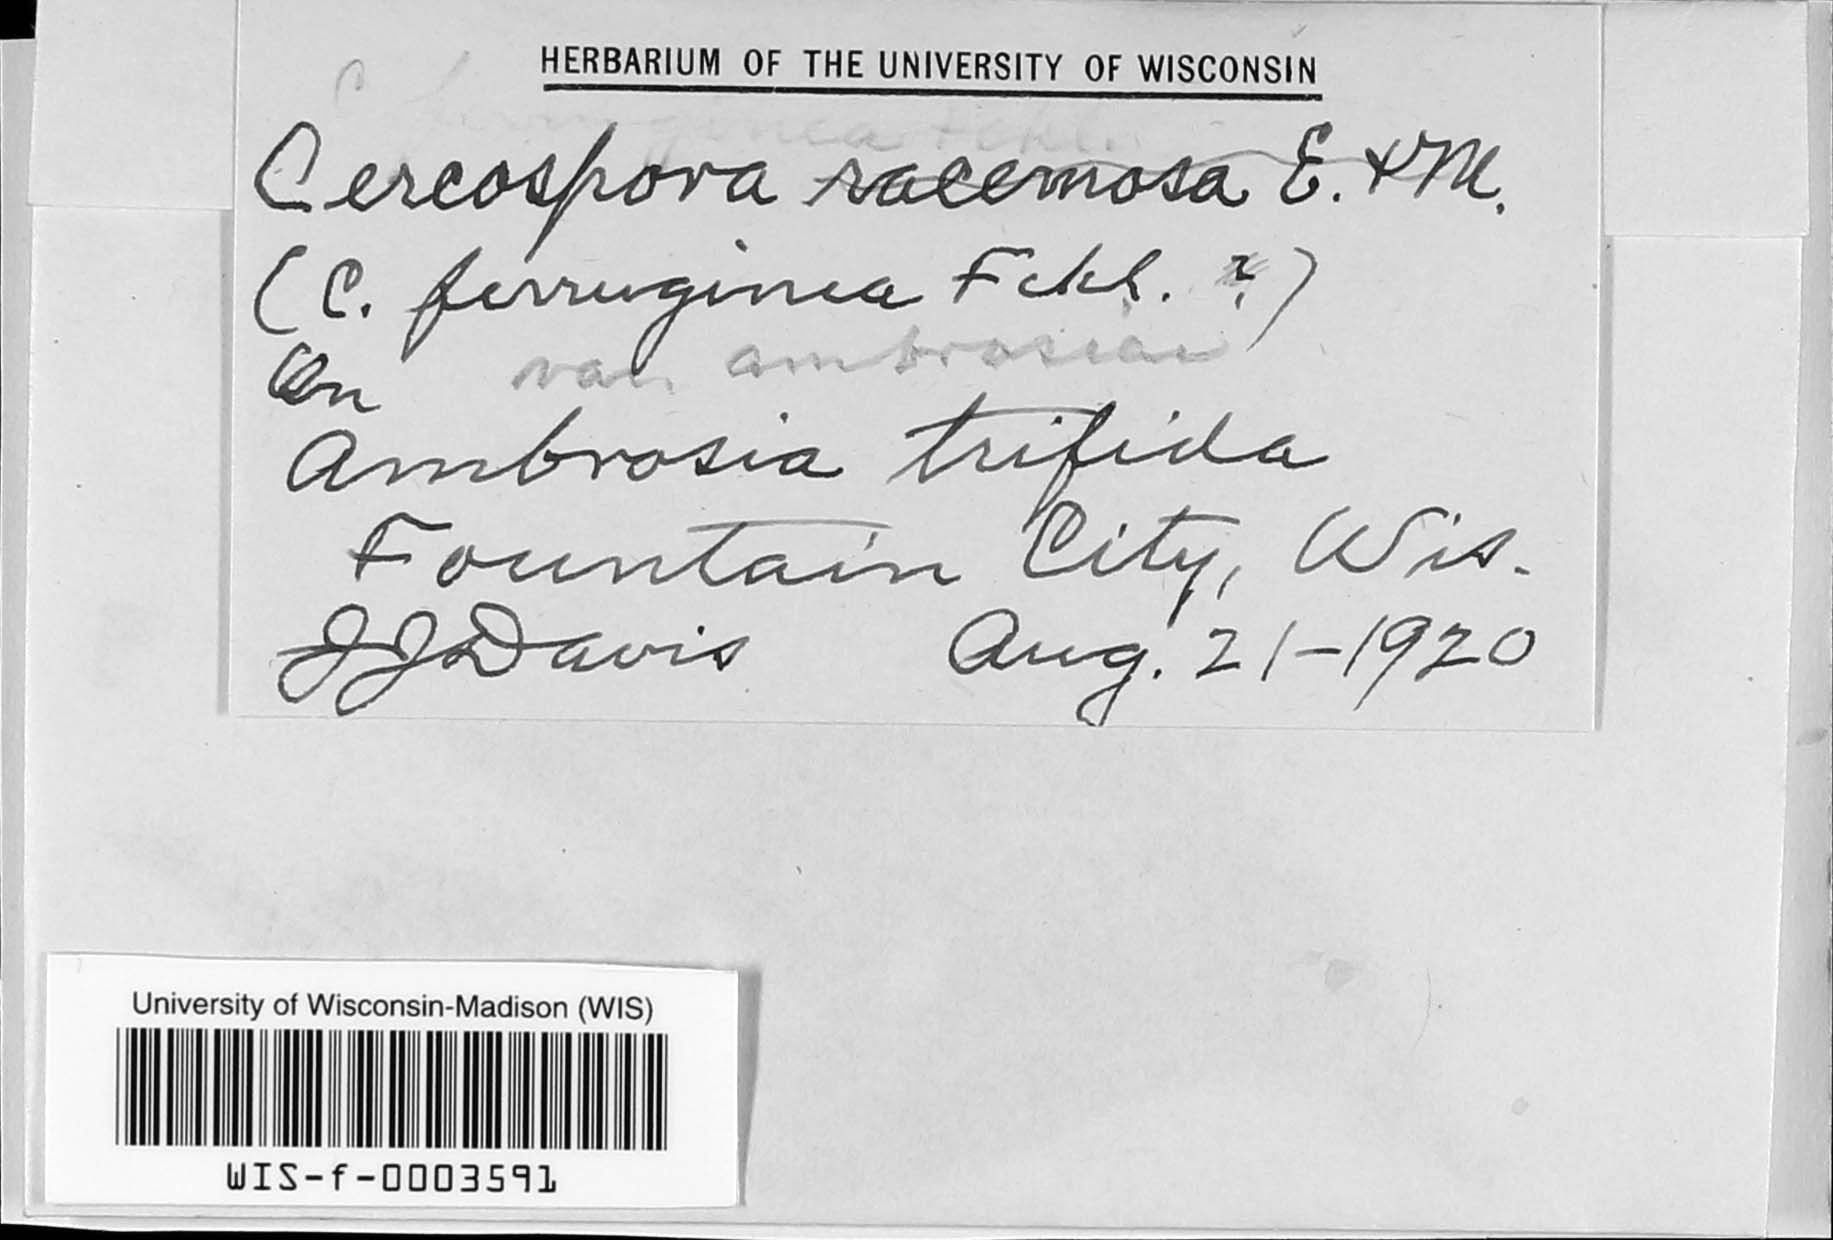 HERBARIUM OF THE UNIVERSITY OF WISCONSIN
C. ferruginea Fckl.
Cercospora racemosa E. & M.
(C. ferruginea Fckl. ?)
var. ambrosiae
On
Ambrosia trifida
Fountain City, Wis.
JJDavis Aug. 21-1920
University of Wisconsin-Madison (WIS)
WIS-f-0003591